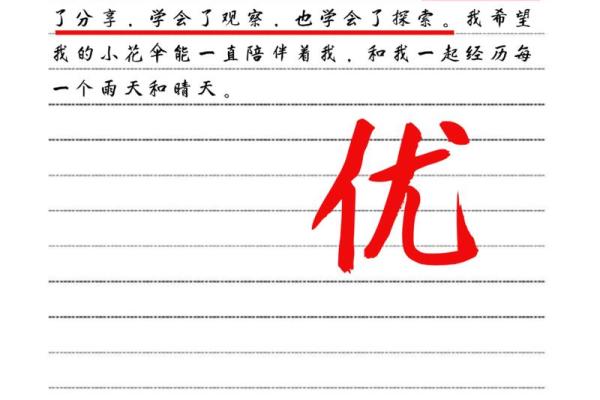 了分享，学会了观察，也学会了探索。我希望
我的小花伞能一直陪伴着我，和我一起经历每
一个雨天和晴天。
优